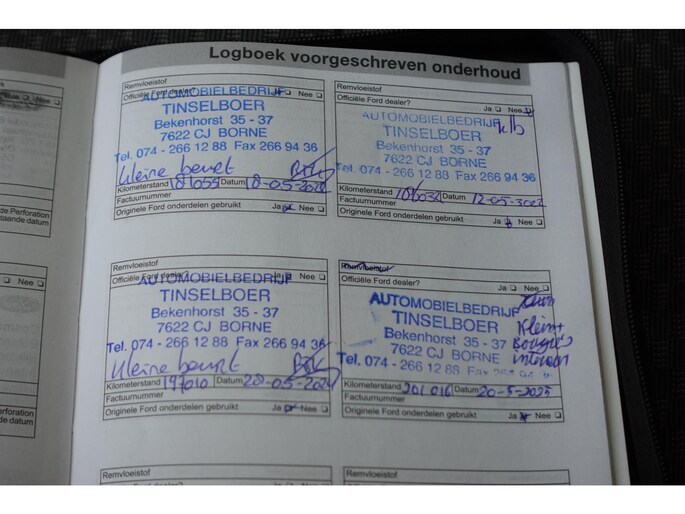 Logboek voorgeschreven onderhoud
Remvloeistof
Officiële Ford dealer? Ja Nee
AUTOMOBIELBEDRIJF
TINSELBOER
Bekenhorst 35 - 37
7622 CJ BORNE
Tel. 074 - 266 12 88 Fax 266 94 36
Kleine beurt
Kilometerstand 181055 Datum 18-05-202
Factuurnummer
Originele Ford onderdelen gebruikt Ja Nee
Remvloeistof
Officiële Ford dealer? Ja Nee
AUTOMOBIELBEDRIJF
TINSELBOER
Bekenhorst 35 - 37
7622 CJ BORNE
Tel. 074 - 266 12 88 Fax 266 94 36
Kilometerstand Datum 12-05-
Factuurnummer
Originele Ford onderdelen gebruikt Ja Nee
Remvloeistof
Officiële Ford dealer? Ja Nee
AUTOMOBIELBEDRIJF
TINSELBOER
Bekenhorst 35 - 37
7622 CJ BORNE
Tel. 074 - 266 12 88 Fax 266 94 36
Kleine beurt
Kilometerstand 197010 Datum 28-05-2024
Factuurnummer
Originele Ford onderdelen gebruikt Ja Nee
Remvloeistof
Officiële Ford dealer? Ja Nee
AUTOMOBIELBEDRIJF
TINSELBOER
Bekenhorst 35 - 37
7622 CJ BORNE
Tel. 074 - 266 12 88 Fax 266 94 36
Klein
Bougie's
Kilometerstand 201016 Datum 20-5-2025
Factuurnummer
Originele Ford onderdelen gebruikt Ja Nee
Remvloeistof
Officiële Ford dealer? Ja Nee
Remvloeistof
Nee
de Perforation
staande datum
Nee
erforation
de datum